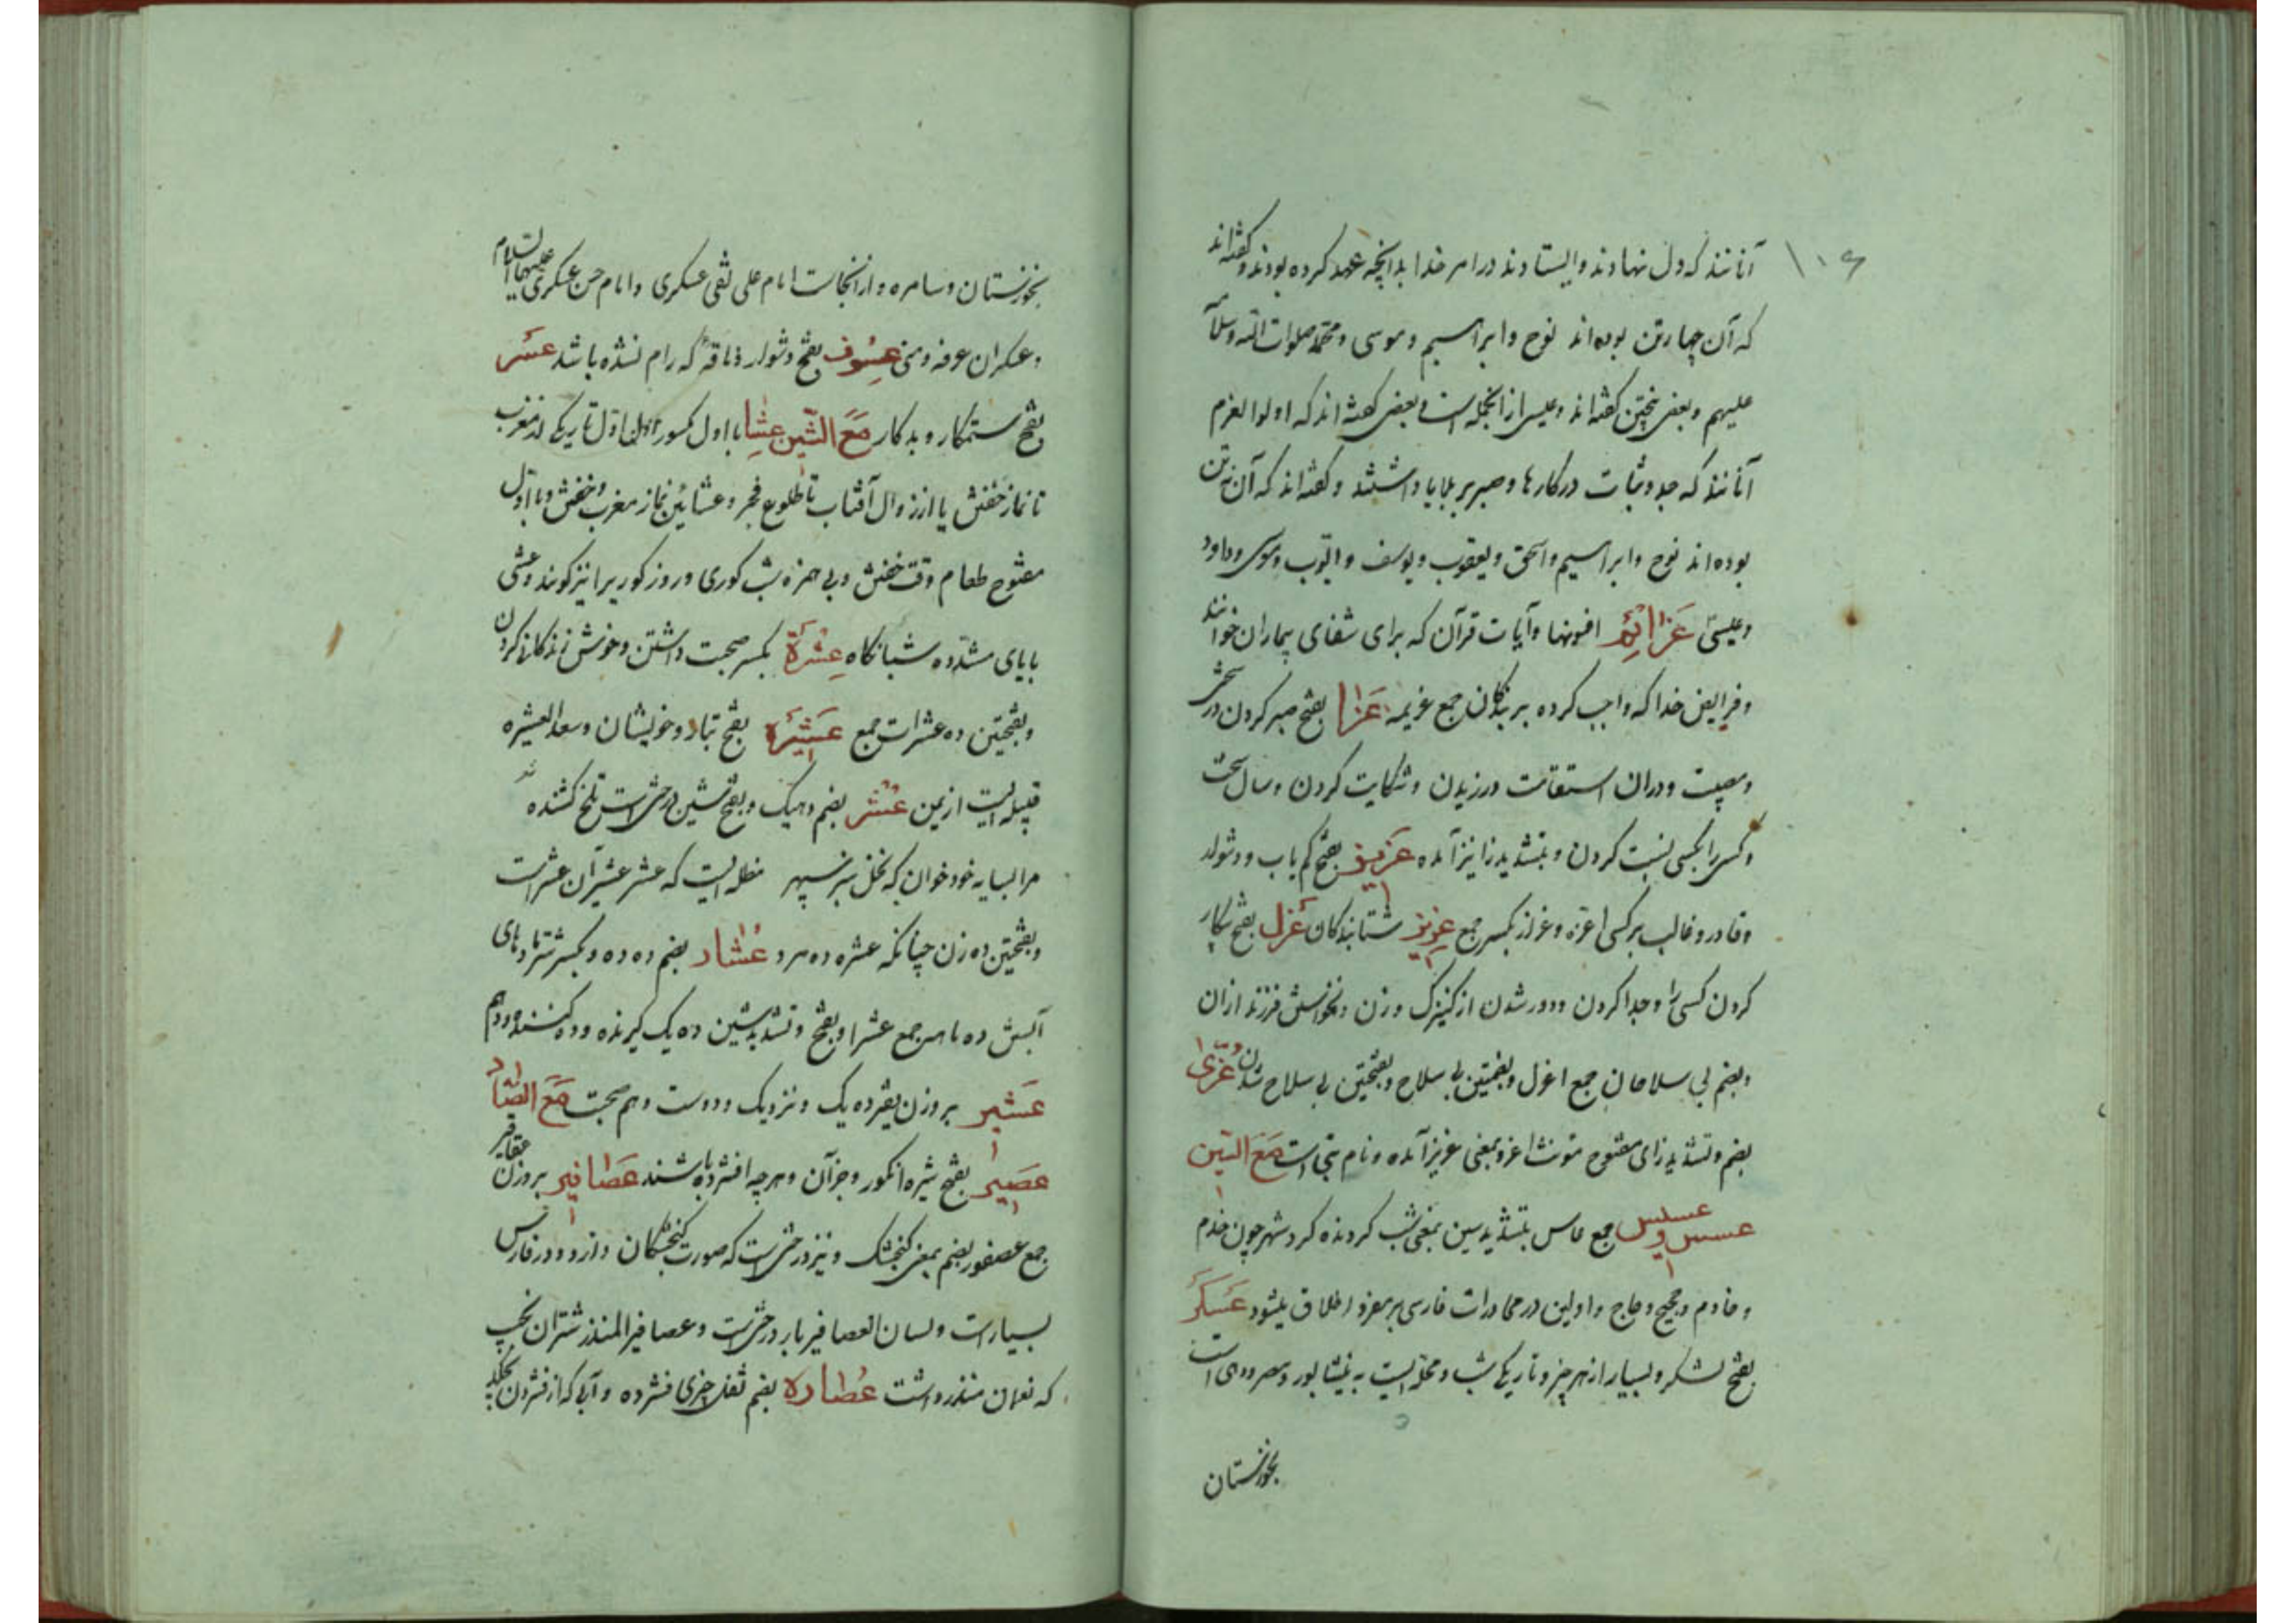 ۱۰۶
آنانند که دل نهادند و ایستادند در امر خدا بدانچه عهد کرده بودند و گفته‌اند
که آن چهار تن بوده‌اند نوح و ابراهیم و موسی و محمد صلوات الله و سلامه
علیهم و بعضی پنج تن گفته‌اند و عیسی از آنجمله است و بعضی گفته‌اند که اولوا العزم
آنانند که جد و ثبات در کارها و صبر بر بلایا داشتند و گفته‌اند که آن نه تن
بوده‌اند نوح و ابراهیم و اسحق و یعقوب و یوسف و ایوب و موسی و داود
و عیسی عَزَائِم افسونها و آیات قرآن که برای شفای بیماران خوانند
و فرایض خدا که واجب کرده بر بندگان جمع عزیمه عَزا بفتح صبر کردن در سختی
و مصیبت و در آن استقامت ورزیدن و شکایت کردن و سال سخت
و کسی را بکسی نسبت کردن و بتشدید زا نیز آمده عَزیز بفتح کم یاب و دشوار
و قادر و غالب بر کسی اعزه و عزاز بکسر جمع عزیز شتابندگان عَزل بفتح بیکار
کردن کسی را و جدا کردن و دور شدن از کنیزک و زن و نخواستن فرزند از آن
و بضم بی سلاحان جمع اعزل و بضمتین بی سلاح و بفتحتین بی سلاح شدن عُزّی
بضم و تشدید زای مفتوح مونث اعز و بمعنی عزیز آمده و نام بتی است مَعَ السّین
عسس و عسیس جمع عاس بتشدید سین بمعنی شب گردنده گرد شهر چون خدم
و خادم و حجیج و حاج و اولین در محاورات فارسی بر مفرد اطلاق میشود عَسکَر
بفتح لشکر و بسیار از هر چیز و تاریکی شب و محله ایست به نیشابور و بمصر و دهی است
بخوزستان
بخوزستان و سامره و از آنجاست امام علی نقی عسکری و امام حسن عسکری علیهما السلام
و عسکران عرفه و منی عَسُوف بفتح دشوار و ناقه که رام نشده باشد عَسِر
بفتح ستمکار و بدکار مَعَ الشّین عِشا با اول مکسور اول تاریکی از مغرب
تا نماز خفتن یا از زوال آفتاب تا طلوع فجر و عشائین نماز مغرب و خفتن و با اول
مفتوح طعام وقت خفتن و بی همزه شب کوری و روز کوری را نیز گویند و عشی
با یای مشدده شبانگاه عِشرَة بکسر صحبت داشتن و خوش زندگانی کردن
و بفتحتین ده عشرات جمع عَشیره بفتح تبار و خویشان و سعد العشیره
قبیله ایست از یمن عُشر بضم دهیک و بفتح شین درختی است تلخ کشنده
مرا بسایه خود خوان که نخل سبز سپهر مظله ایست که عشر عشیر آن عشر است
و بفتحتین ده زن چنانکه عشره ده مرد عُشار بضم ده ده و بکسر شترماده‌های
آبستن ده ماهه جمع عشرا و بفتح و تشدید شین ده یک گیرنده و ده کننده و دهم
عَشیر بروزن بقر ده یک و نزدیک و دوست و هم صحبت مَعَ الصّاد
عَصیر بفتح شیره انگور و جز آن و هر چه افشرده باشند عَصافیر بروزن عقاقیر
جمع عصفور بضم بمعنی گنجشک و نیز درختی است که صورت گنجشکان دارد و در فارس
بسیار است و لسان العصافیر بار درختی است و عصافیر المنذر شتران نجیب
که نعمان منذر داشت عُصاره بضم ثفل چیزی فشرده و آبی که از فشردن بچکد